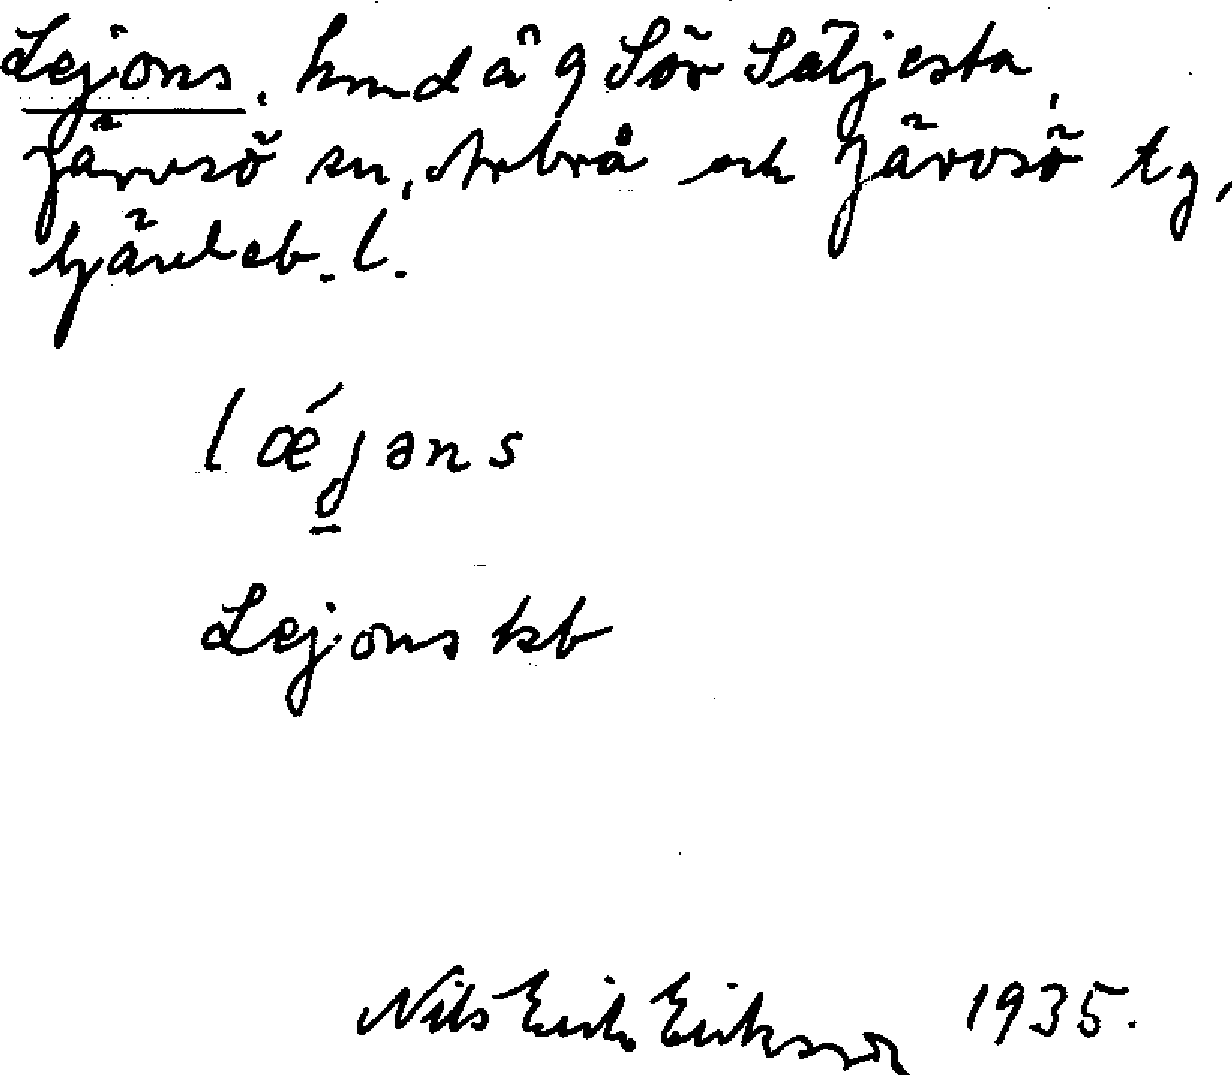 Lejons, hmd å 9 Sör Säljesta,
Järvsö sn, Arbrå och Järvsö tg,
Gävleb. l.
lǽjəns
Lejons kb
Nils Erik Eriksson 1935.